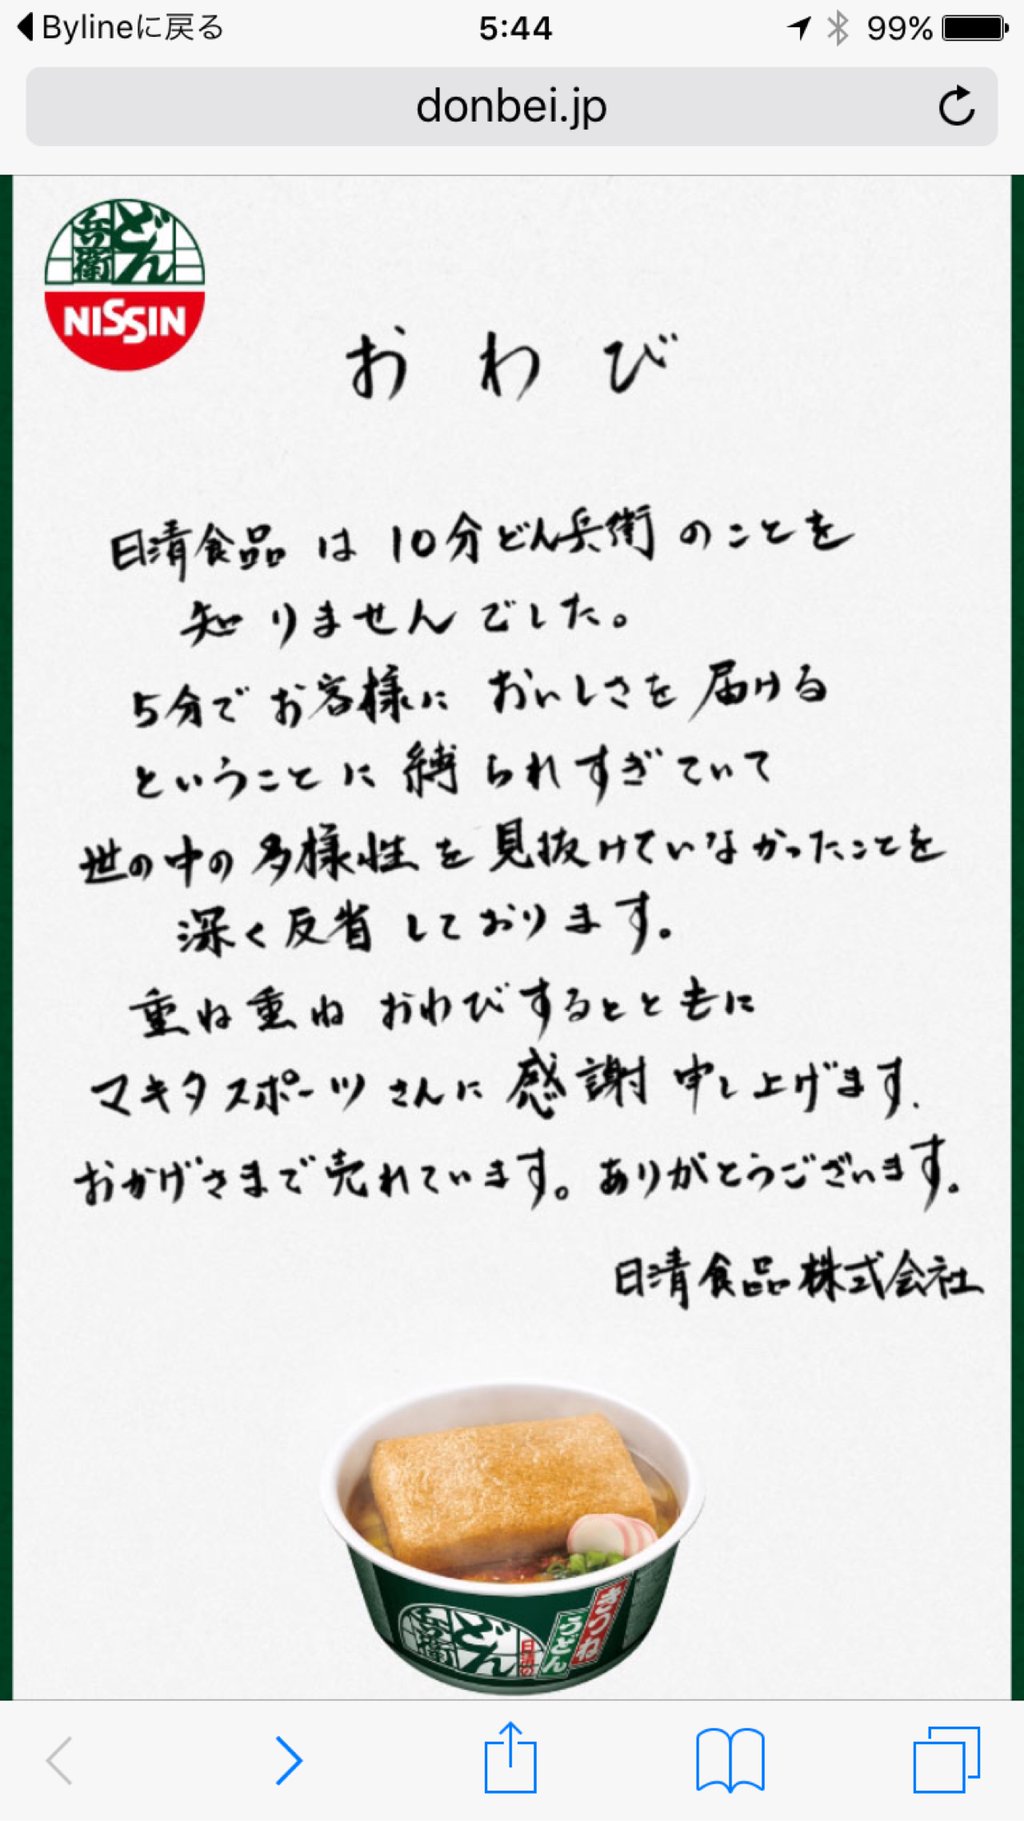 Bylineに戻る 5:44 99%
donbei.jp
どん兵衛
NISSIN
おわび
日清食品は10分どん兵衛のことを
知りませんでした。
5分でお客様においしさを届ける
ということに縛られすぎていて
世の中の多様性を見抜けていなかったことを
深く反省しております。
重ね重ねおわびするとともに
マキタスポーツさんに感謝申し上げます.
おかげさまで売れています。ありがとうございます.
日清食品株式会社
日清の
どん兵衛
きつね
うどん